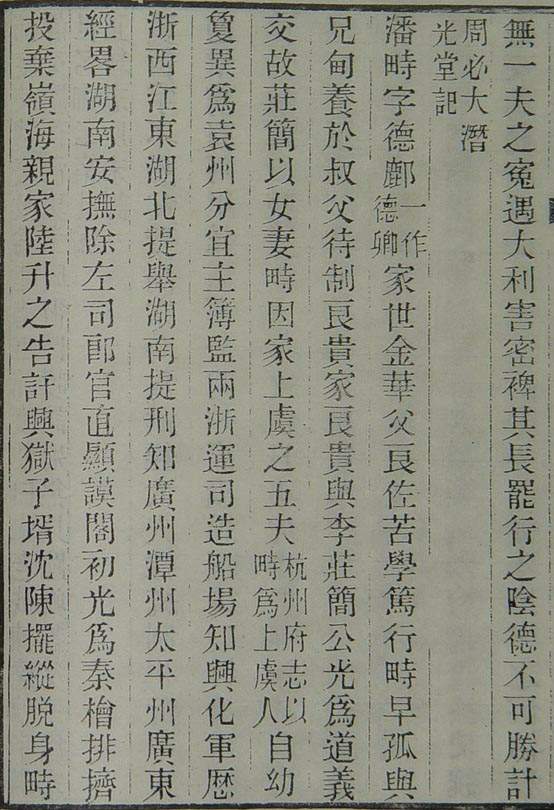 無一夫之寃遇大利害密裨其長罷行之陰德不可勝計
周必大濳
光堂記
潘畤字德鄜
一作
德卿
家世金華父良佐苦學篤行畤早孤與
兄甸養於叔父待制良貴家良貴與李莊簡公光爲道義
交故莊簡以女妻畤因家上虞之五夫
杭州府志以
畤爲上虞人
自幼
敻異爲袁州分宜主簿監兩浙運司造船場知興化軍歷
浙西江東湖北提舉湖南提刑知廣州潭州太平州廣東
經畧湖南安撫除左司郎官直顯謨閣初光爲秦檜排擠
投棄嶺海親家陸升之告訐興獄子壻沈陳擺縱脫身畤